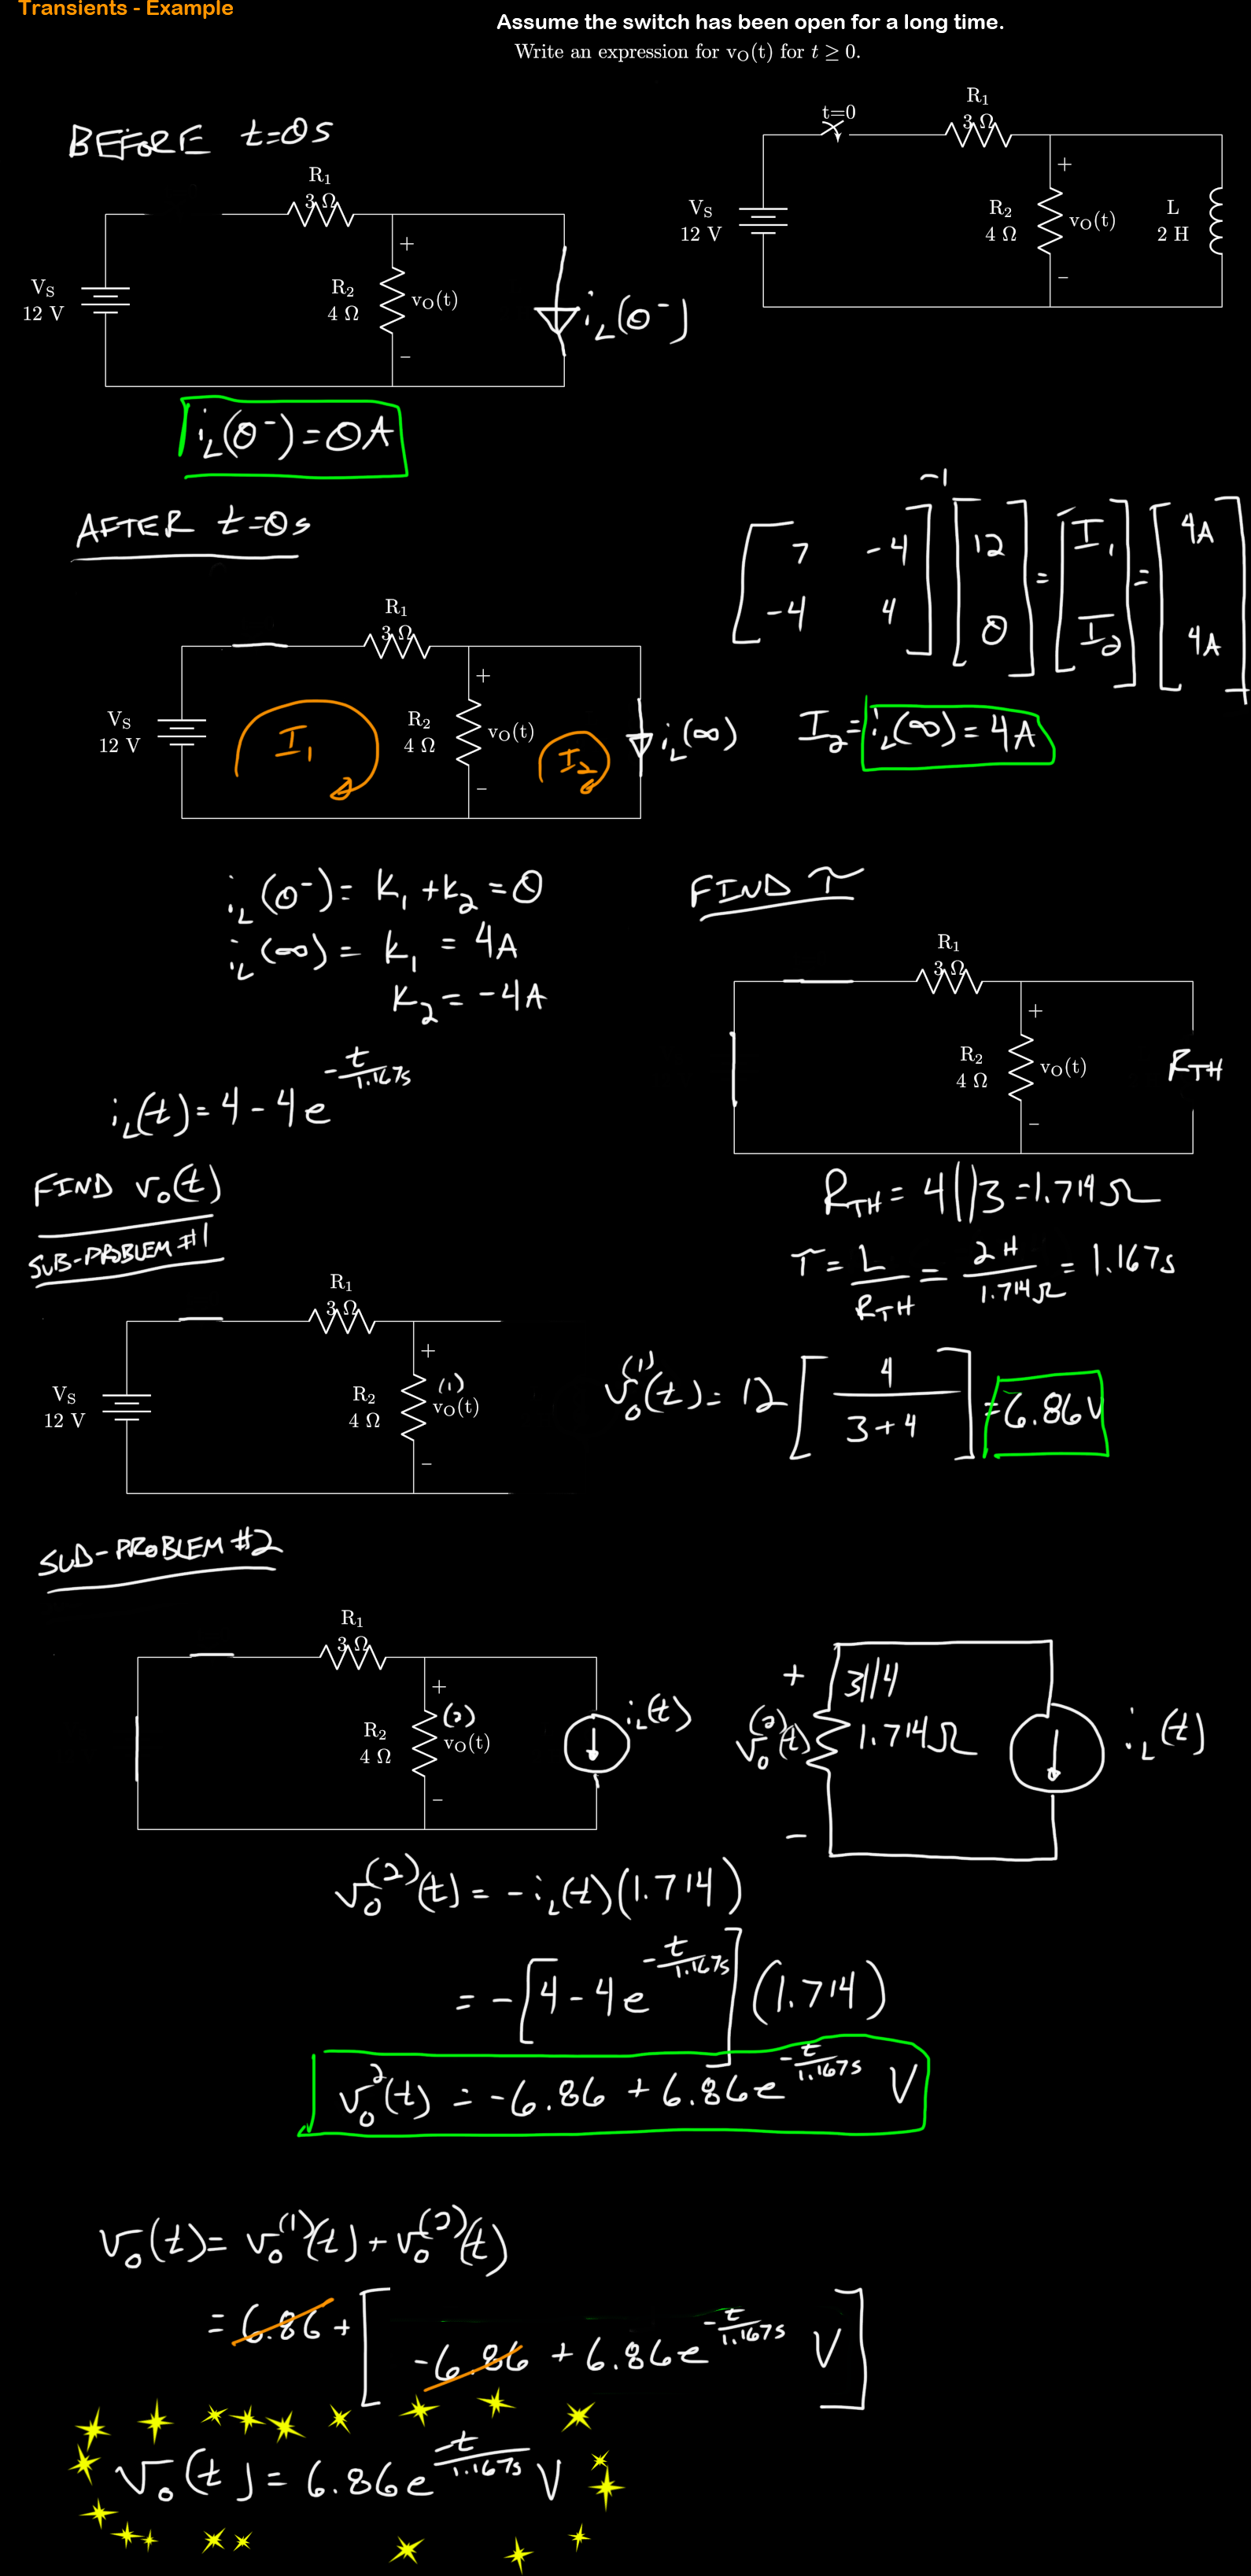 Transients - Example
Assume the switch has been open for a long time.
Write an expression for vO(t) for t ≥ 0.
t=0
R1
3 Ω
VS
12 V
R2
4 Ω
+
vO(t)
−
L
2 H
BEFORE t=0s
R1
3 Ω
VS
12 V
R2
4 Ω
+
vO(t)
−
iL(0⁻)
iL(0⁻) = 0A
AFTER t=0s
R1
3 Ω
VS
12 V
I1
R2
4 Ω
+
vO(t)
−
I2
iL(∞)
[7 -4; -4 4]⁻¹ [12; 0] = [I1; I2] = [4A; 4A]
I2 = iL(∞) = 4A
iL(0⁻) = K1 + K2 = 0
iL(∞) = K1 = 4A
K2 = -4A
iL(t) = 4 - 4e^(-t/1.167s)
FIND τ
R1
3 Ω
R2
4 Ω
+
vO(t)
−
RTH
RTH = 4||3 = 1.714Ω
τ = L/RTH = 2H/1.714Ω = 1.167s
FIND vo(t)
SUB-PROBLEM #1
R1
3 Ω
VS
12 V
R2
4 Ω
+
(1)
vO(t)
−
vo^(1)(t) = 12 [4/(3+4)] = 6.86V
SUB-PROBLEM #2
R1
3 Ω
R2
4 Ω
+
(2)
vO(t)
−
iL(t)
+
vo^(2)(t)
−
3||4
1.714Ω
iL(t)
vo^(2)(t) = -iL(t)(1.714)
= -[4 - 4e^(-t/1.167s)] (1.714)
vo^2(t) = -6.86 + 6.86e^(-t/1.167s) V
vo(t) = vo^(1)(t) + vo^(2)(t)
= 6.86 + [-6.86 + 6.86e^(-t/1.167s) V]
vo(t) = 6.86e^(-t/1.167s) V